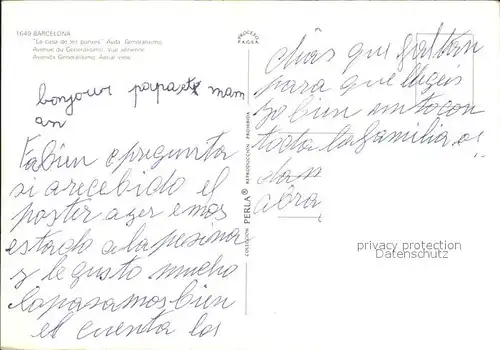 1649-BARCELONA
"La casa de les punxes". Avda. Generalísimo.
Avenue du Generalisimo. Vue aérienne.
Avenida Generalísimo. Aerial view.
bonjour papa et mam
an
Fabien epregunta
si a recebido el
poster ayer emos
estado a la pesina
y le gusto mucho
lo pasamos bien
el cuenta los
COLECCIÓN PERLA® REPRODUCCIÓN PROHIBIDA
dias que faltan
para que llegeis
yo bien en to con
toda la familia os
dan
privacy protection
Datenschutz